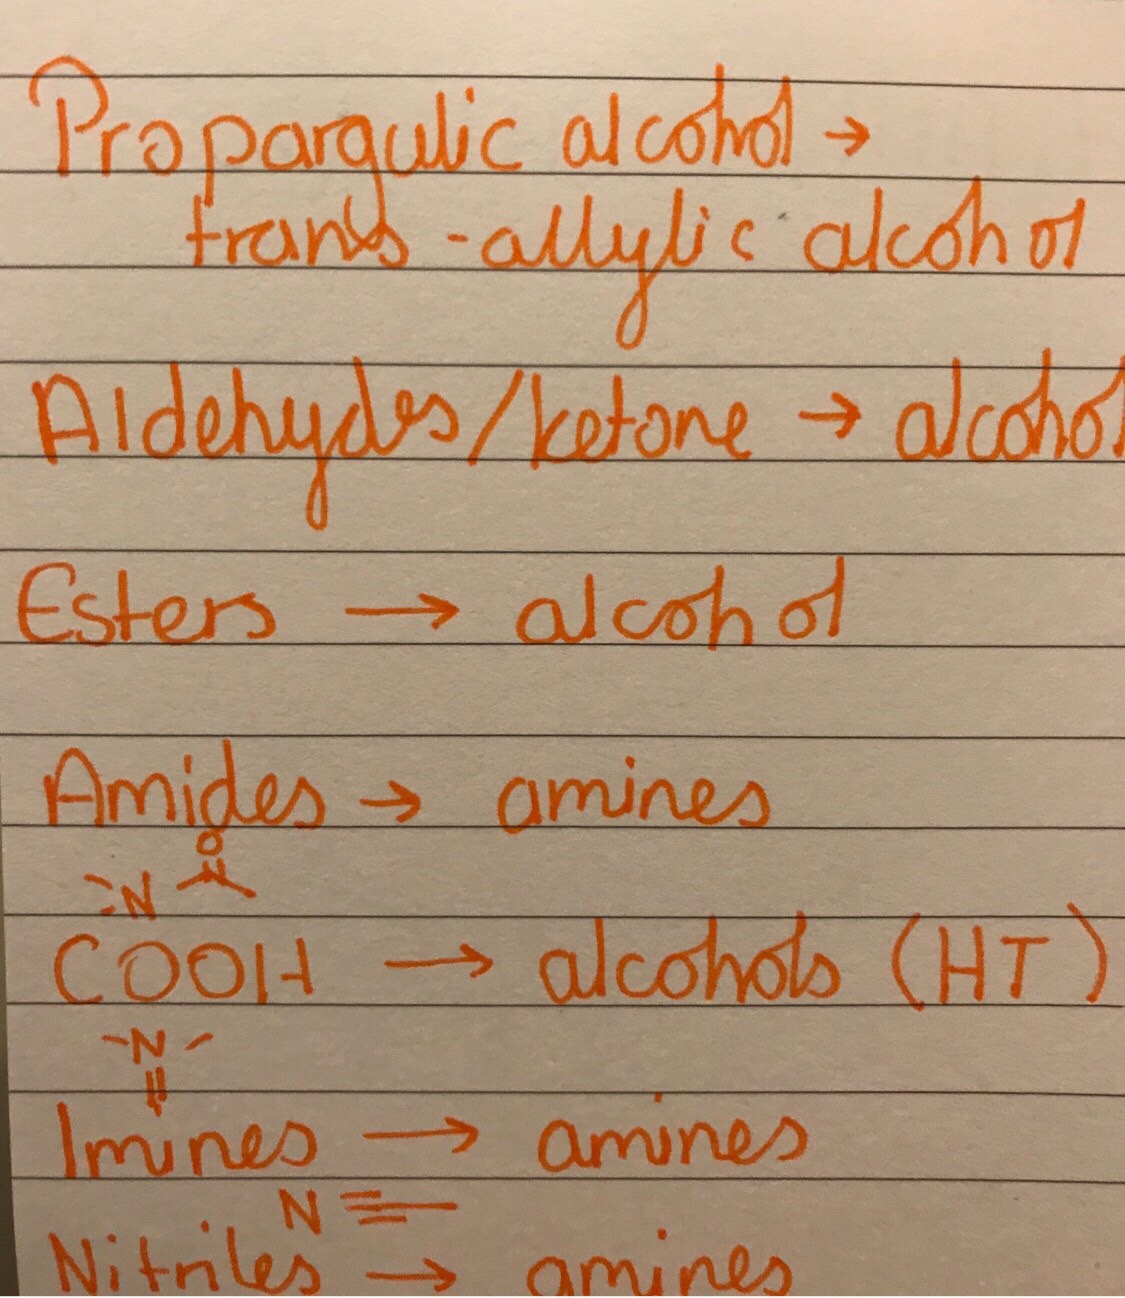 Propargulic alcohol →
trans-allylic alcohol
Aldehydes/ketone → alcohol
Esters → alcohol
Amides → amines
O
N
COOH → alcohols (HT)
N
Imines → amines
N
Nitriles → amines